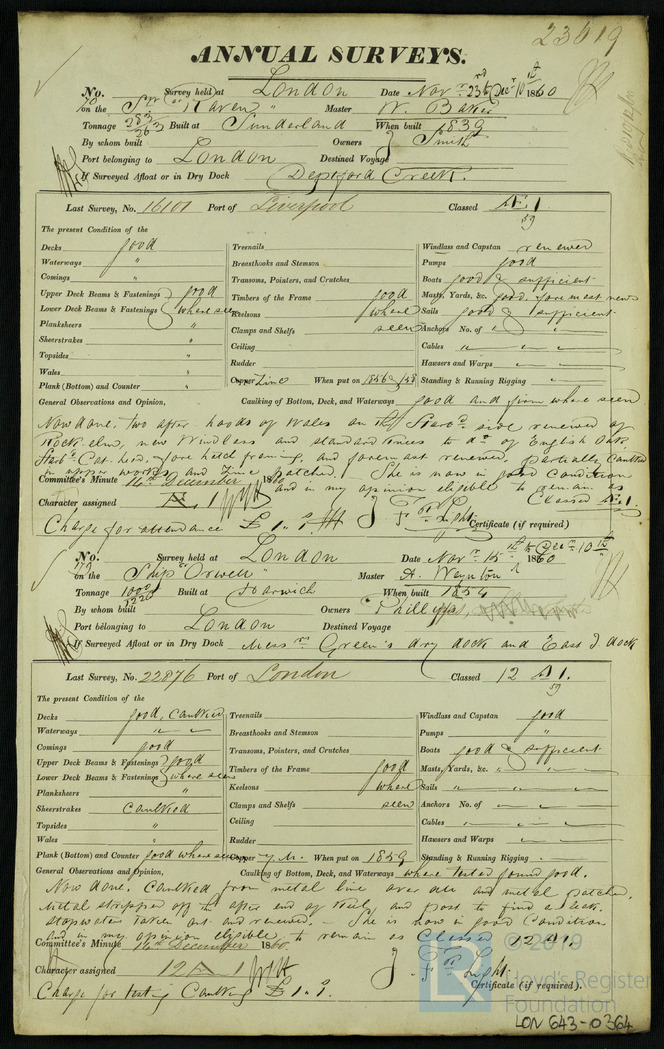 23619
ANNUAL SURVEYS.
No. 70 Survey held at London Date Novr. 23rd Decr 10th 1860
on the Snr "Raven" Master W. Baker
Tonnage 283 263 Built at Sunderland When built 1839
By whom built Owners J Smith
Port belonging to London Destined Voyage
If Surveyed Afloat or in Dry Dock Deptford Creek.
Last Survey, No. 16101 Port of Liverpool Classed Æ 1. 59
The present Condition of the
Decks good
Waterways "
Comings "
Upper Deck Beams & Fastenings good
Lower Deck Beams & Fastenings where seen
Planksheers "
Sheerstrakes "
Topsides "
Wales "
Plank (Bottom) and Counter "
Treenails
Breasthooks and Stemson
Transoms, Pointers, and Crutches
Timbers of the Frame good
Keelsons where
Clamps and Shelfs seen
Ceiling
Rudder
Copper Zinc When put on 1856 & /58
Windlass and Capstan renewed
Pumps good
Boats good & sufficient
Masts, Yards, &c. good. foremast new
Sails good & sufficient
Anchors No. of " "
Cables " "
Hawsers and Warps "
Standing & Running Rigging "
General Observations and Opinion, Caulking of Bottom, Deck, and Waterways good and firm where seen
Now done. two after hoods of Wales on the Starbd. side renewed of
Rock elm, new Windlass and standard knees to do. of English Oak
Starbd. Cat head, fore hatch framing, and foremast renewed, partially Caulked
in upper works and Zinc patched. She is now in good Condition
and in my opinion eligible to remain as
Committee's Minute 14th December 1860 Classed Æ 1.
Character assigned Æ 1
Charge for attendance £1.1. Certificate (if required)
No. 179 Survey held at London Date Novr. 15th to Decr. 10th 1860
on the Ship "Orwell" Master A. Weynton
Tonnage 1000 1220 Built at Harwich When built 1854
By whom built Owners Phillipps,
Port belonging to London Destined Voyage
If Surveyed Afloat or in Dry Dock Messrs Green's dry dock and East I dock
Last Survey, No. 22876 Port of London Classed 12 A 1. 59
The present Condition of the
Decks good, Caulked
Waterways " "
Comings good
Upper Deck Beams & Fastenings good
Lower Deck Beams & Fastenings where seen
Planksheers
Sheerstrakes Caulked
Topsides "
Wales "
Plank (Bottom) and Counter good where seen
Treenails
Breasthooks and Stemson
Transoms, Pointers, and Crutches
Timbers of the Frame good
Keelsons where
Clamps and Shelfs seen
Ceiling
Rudder
Copper Y.M. When put on 1859
Windlass and Capstan good
Pumps "
Boats good & sufficient
Masts, Yards, &c. " "
Sails " "
Anchors No. of " "
Cables " "
Hawsers and Warps " "
Standing & Running Rigging
General Observations and Opinion, Caulking of Bottom, Deck, and Waterways where tested found good.
Now done. Caulked from metal line over all and metal patched.
Metal stripped off the after end of Keel and post to find a leak.
stopwater taken out and renewed. - She is now in good Condition
and in my opinion eligible to remain as Classed 12 A 1.
Committee's Minute 14th December 1860.
Character assigned 12 A 1
Charge for testing Caulking £1.1. Certificate (if required).
© 2019
LR
Lloyd's Register
Foundation
LON 643-0364